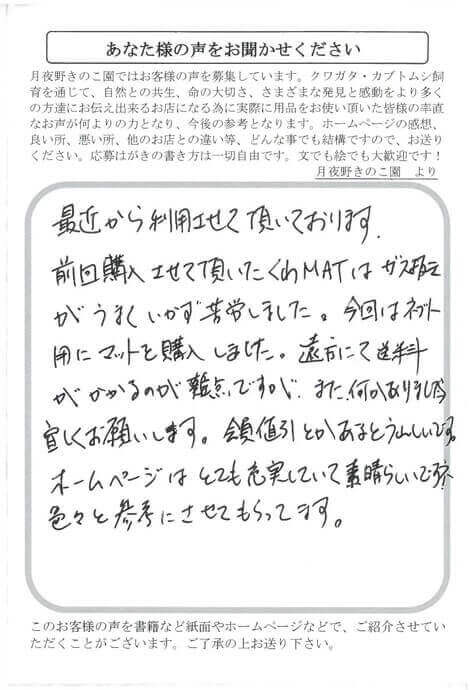 あなた様の声をお聞かせください
月夜野きのこ園ではお客様の声を募集しています。クワガタ・カブトムシ飼
育を通じて、自然との共生、命の大切さ、さまざまな発見と感動をより多く
の方達にお伝え出来るお店になる為に実際に用品をお使い頂いた皆様の率直
なお声が何よりの力となり、今後の参考となります。ホームページの感想、
良い所、悪い所、他のお店との違い等、どんな事でも結構ですので、お送り
ください。応募はがきの書き方は一切自由です。文でも絵でも大歓迎です!
月夜野きのこ園 より
最近から利用させて頂いております.
前回購入させて頂いたくわMATはガス抜き
がうまくいかず苦労しました。今回はネット
用にマットを購入しました。遠方にて送料
がかかるのが難点ですが、また何かありましたら
宜しくお願いします。会員値引とかあるとうれしいです。
ホームページはとても充実していて素晴らしいです
色々と参考にさせてもらってます。
このお客様の声を書籍など紙面やホームページなどで、ご紹介させてい
ただくことがございます。ご了承の上お送り下さい。